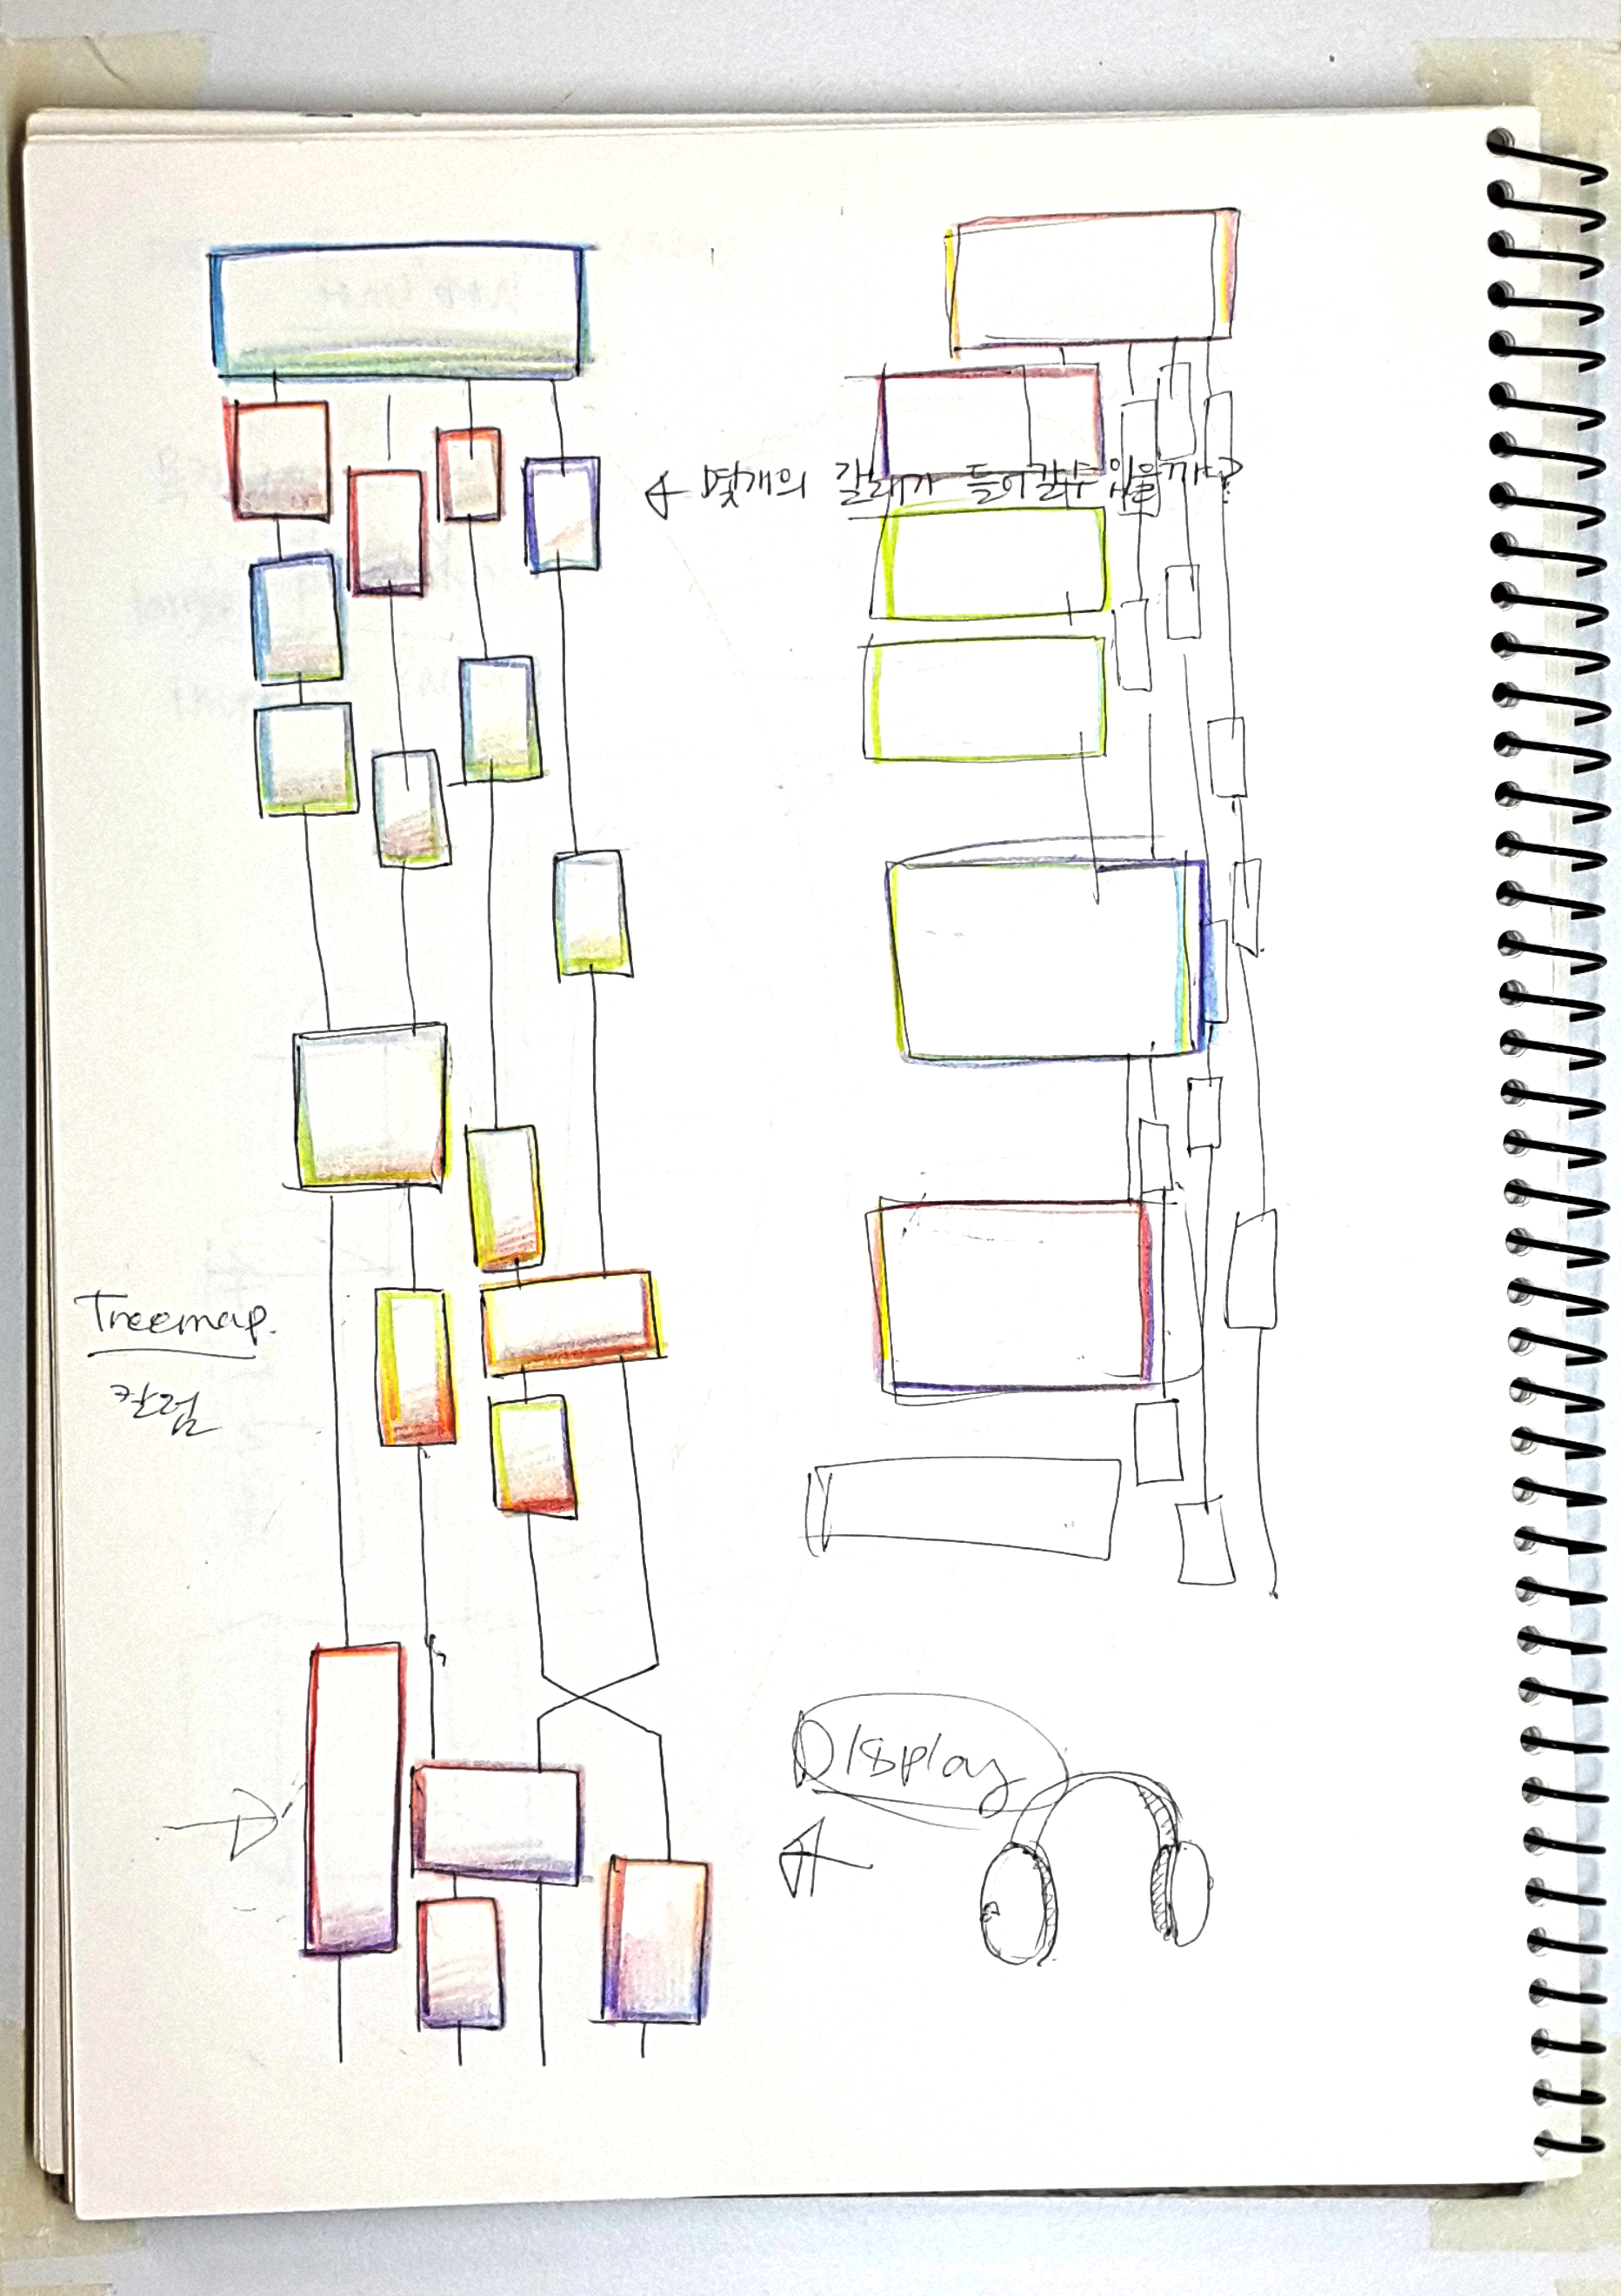 ← 몇개의 갈래가 들어갈수 있을까?
Treemap.
Display